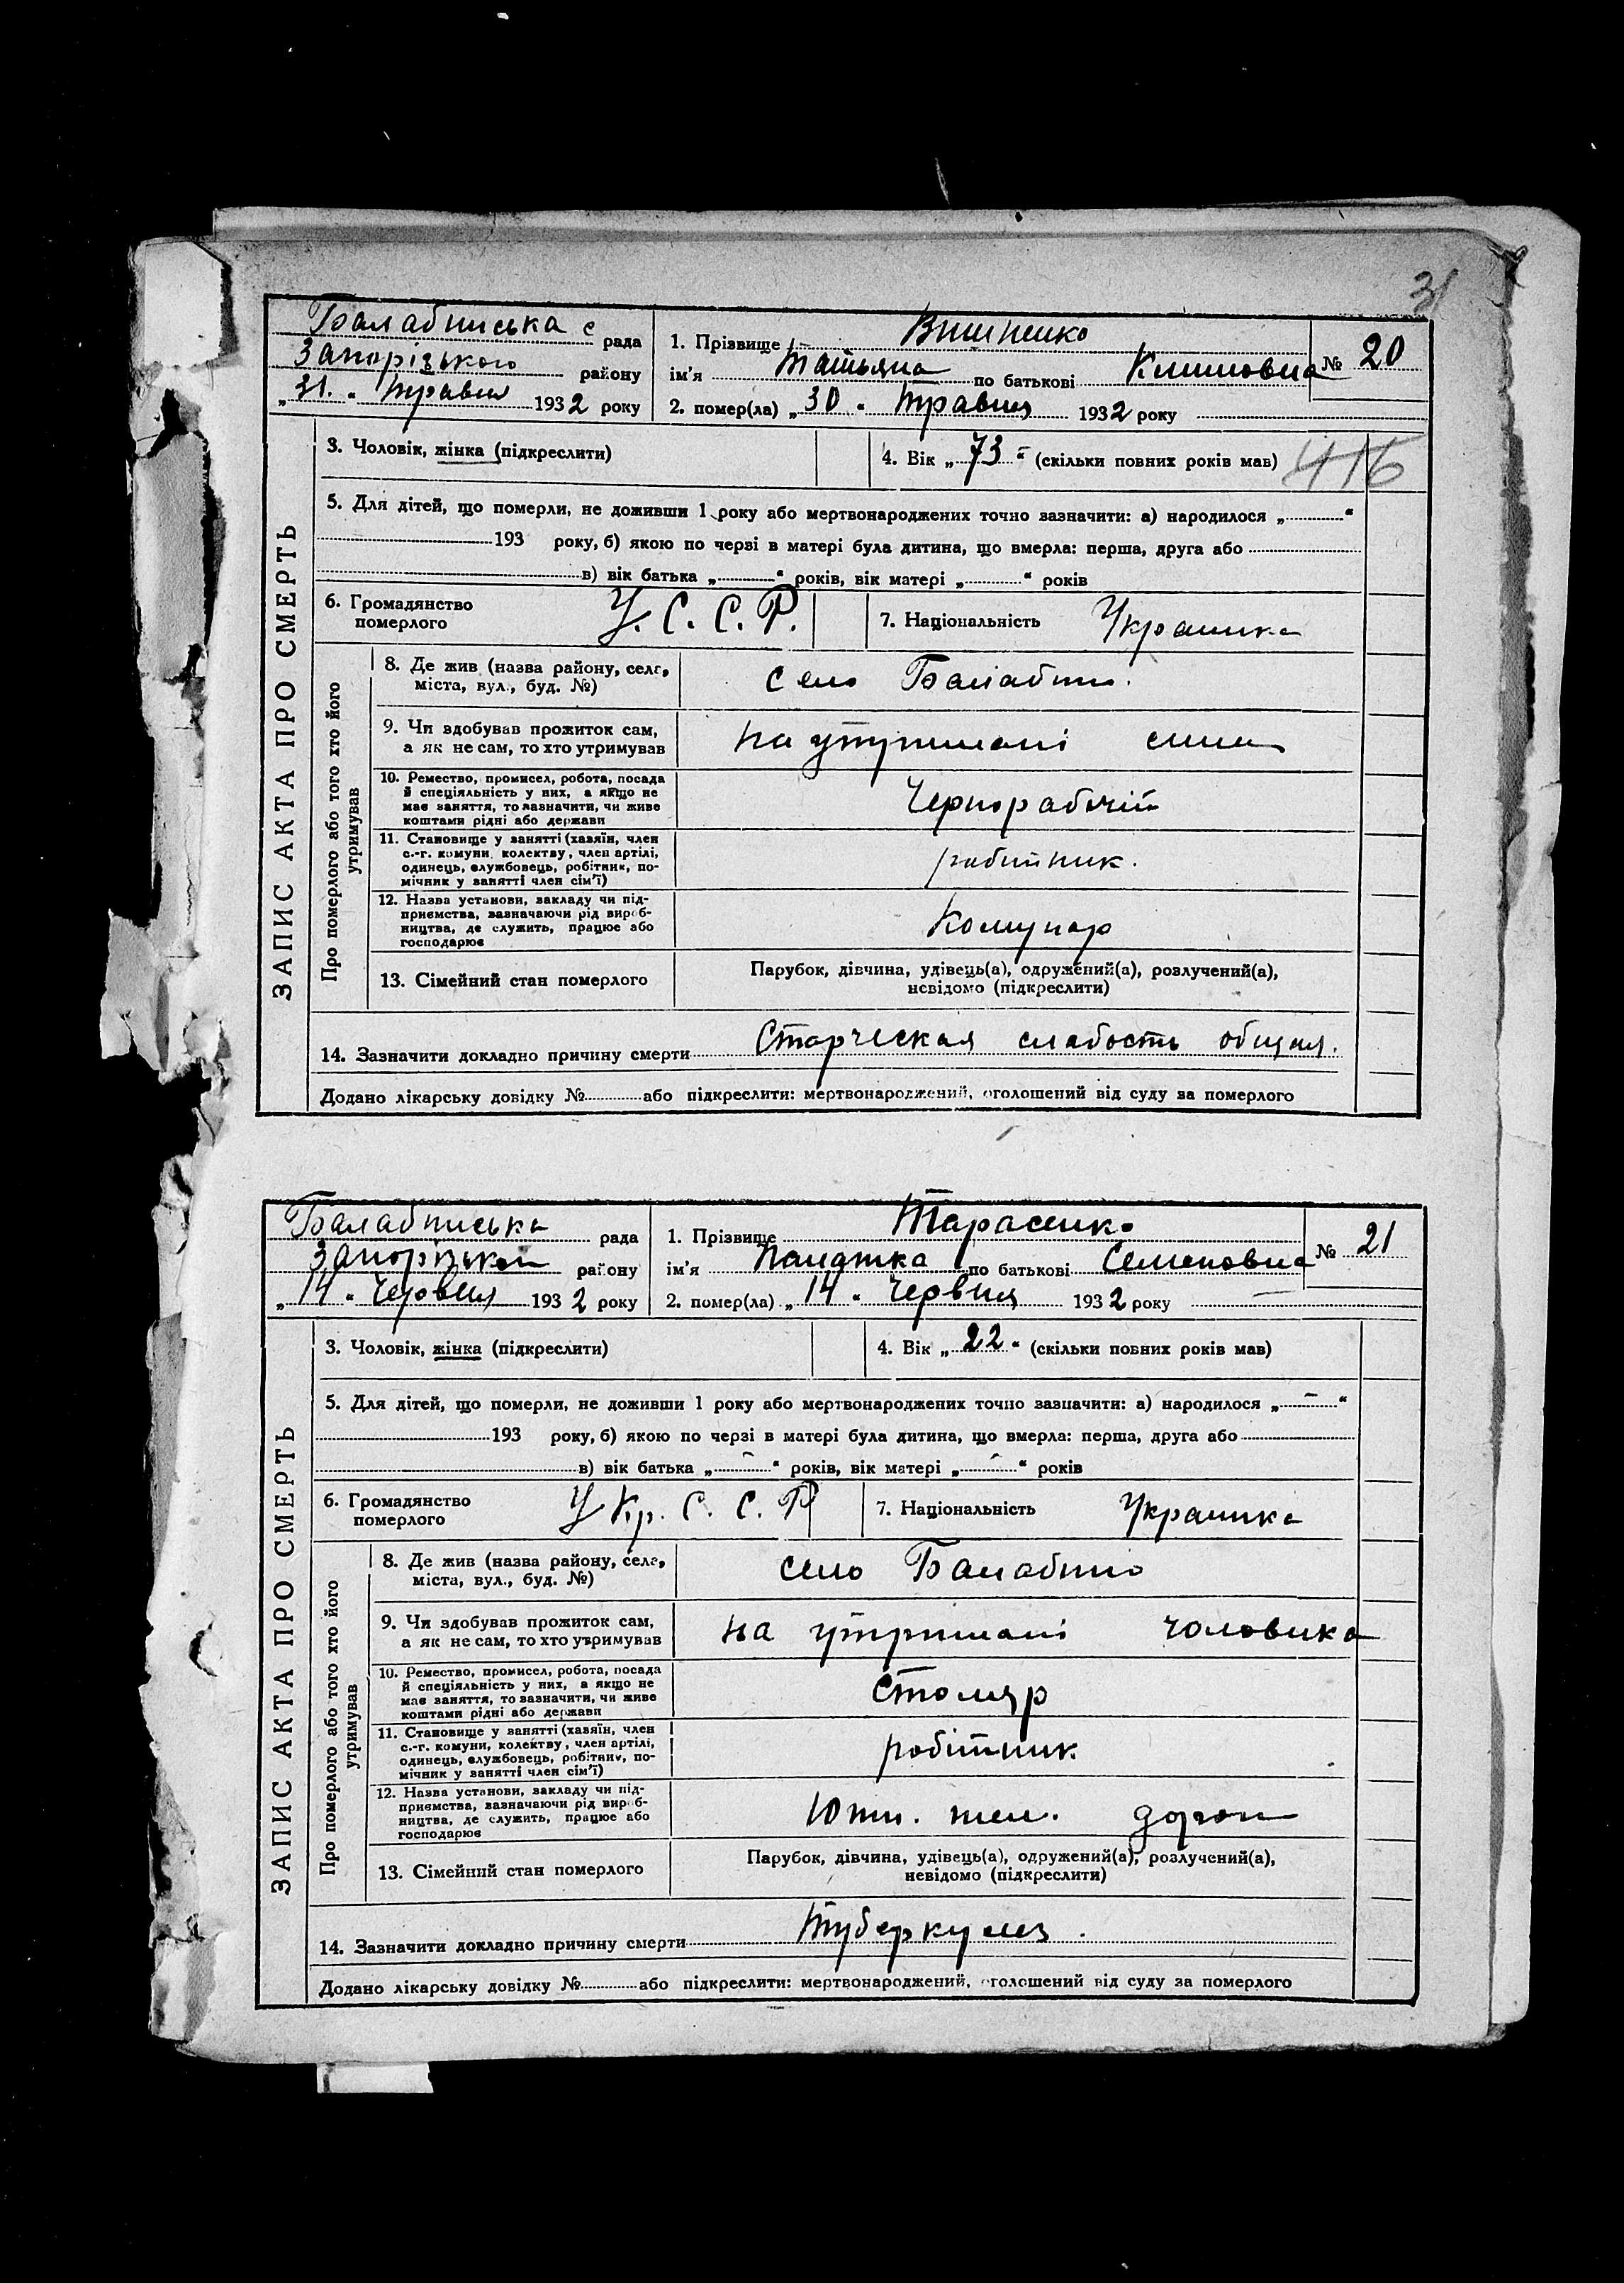 31
Балабинська с рада
Запорізького району
„31.“ травня 1932 року
1. Прізвище
№ 20
ім’я Татьяна по батькові Климовна
2. помер(ла) „30“ травня 1932 року
ЗАПИС АКТА ПРО СМЕРТЬ
3. Чоловік, жінка (підкреслити)
4. Вік „73“ (скільки повних років мав)
416
5. Для дітей, що померли, не доживши 1 року або мертвонароджених точно зазначити: а) народилося „ “
193 року, б) якою по черзі в матері була дитина, що вмерла: перша, друга або
в) вік батька „ “ років, вік матері „ “ років
6. Громадянство
померлого
У. С. С. Р.
7. Національність Украинка
Про померлого або того хто його
утримував
8. Де жив (назва району, села,
міста, вул., буд. №)
село Балабино.
9. Чи здобував прожиток сам,
а як не сам, то хто утримував
на утримані сина
10. Ремество, промисел, робота, посада
й спеціяльність у них, а якщо не
має заняття, то зазначити, чи живе
коштами рідні або держави
Чернорабочій
11. Становище у занятті (хазяїн, член
с.-г. комуни, колектву, член артілі,
одинець, службовець, робітник, по-
мічник у занятті член сім’ї)
робітник.
12. Назва установи, закладу чи під-
приємства, зазначаючи рід вироб-
ництва, де служить, працює або
господарює
Комунар
13. Сімейний стан померлого
Парубок, дівчина, удівець(а), одружений(а), розлучений(а),
невідомо (підкреслити)
14. Зазначити докладно причину смерти Старческая слабость общая.
Додано лікарську довідку № або підкреслити: мертвонароджений, оголошений від суду за померлого
Балабинська рада
Запорізької району
„14“ Червня 1932 року
1. Прізвище Тарасенко
№ 21
ім’я по батькові Семеновна
2. помер(ла) „14“ Червня 1932 року
ЗАПИС АКТА ПРО СМЕРТЬ
3. Чоловік, жінка (підкреслити)
4. Вік „22“ (скільки повних років мав)
5. Для дітей, що померли, не доживши 1 року або мертвонароджених точно зазначити: а) народилося „ – “
193 року, б) якою по черзі в матері була дитина, що вмерла: перша, друга або
в) вік батька „ – “ років, вік матері „ – “ років
6. Громадянство
померлого
Укр. С. С. Р
7. Національність Украинка
Про померлого або того хто його
утримував
8. Де жив (назва району, села,
міста, вул., буд. №)
село Балабино
9. Чи здобував прожиток сам,
а як не сам, то хто утримував
на утримані чоловика
10. Ремество, промисел, робота, посада
й спеціяльність у них, а якщо не
має заняття, то зазначити, чи живе
коштами рідні або держави
Столяр
11. Становище у занятті (хазяїн, член
с.-г. комуни, колектву, член артілі,
одинець, службовець, робітник, по-
мічник у занятті член сім’ї)
робітник
12. Назва установи, закладу чи під-
приємства, зазначаючи рід вироб-
ництва, де служить, працює або
господарює
13. Сімейний стан померлого
Парубок, дівчина, удівець(а), одружений(а), розлучений(а),
невідомо (підкреслити)
14. Зазначити докладно причину смерти Туберкулез.
Додано лікарську довідку № або підкреслити: мертвонароджений, оголошений від суду за померлого